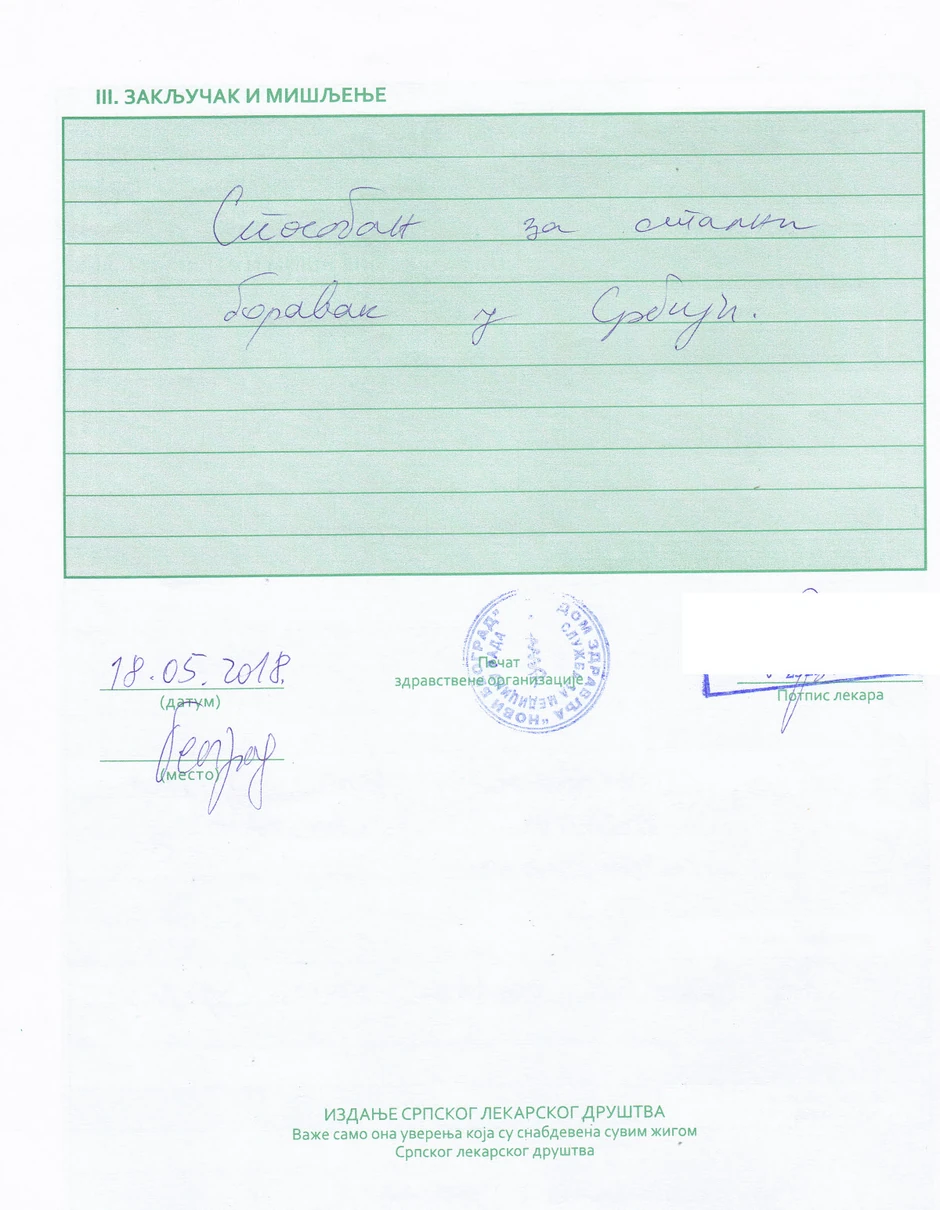 III. ЗАКЉУЧАК И МИШЉЕЊЕ
Способан за стални
боравак у Србији.
18.05.2018.
(датум)
Печат
здравствене организације
ДОМ ЗДРАВЉА "НОВИ БЕОГРАД"
СЛУЖБА МЕДИЦИНЕ РАДА
Потпис лекара
Београд
(место)
ИЗДАЊЕ СРПСКОГ ЛЕКАРСКОГ ДРУШТВА
Важе само она уверења која су снабдевена сувим жигом
Српског лекарског друштва